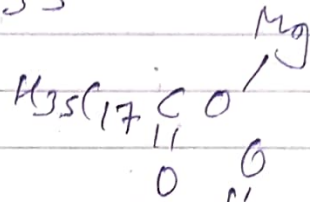 Mg
H35C17 C O
O
O